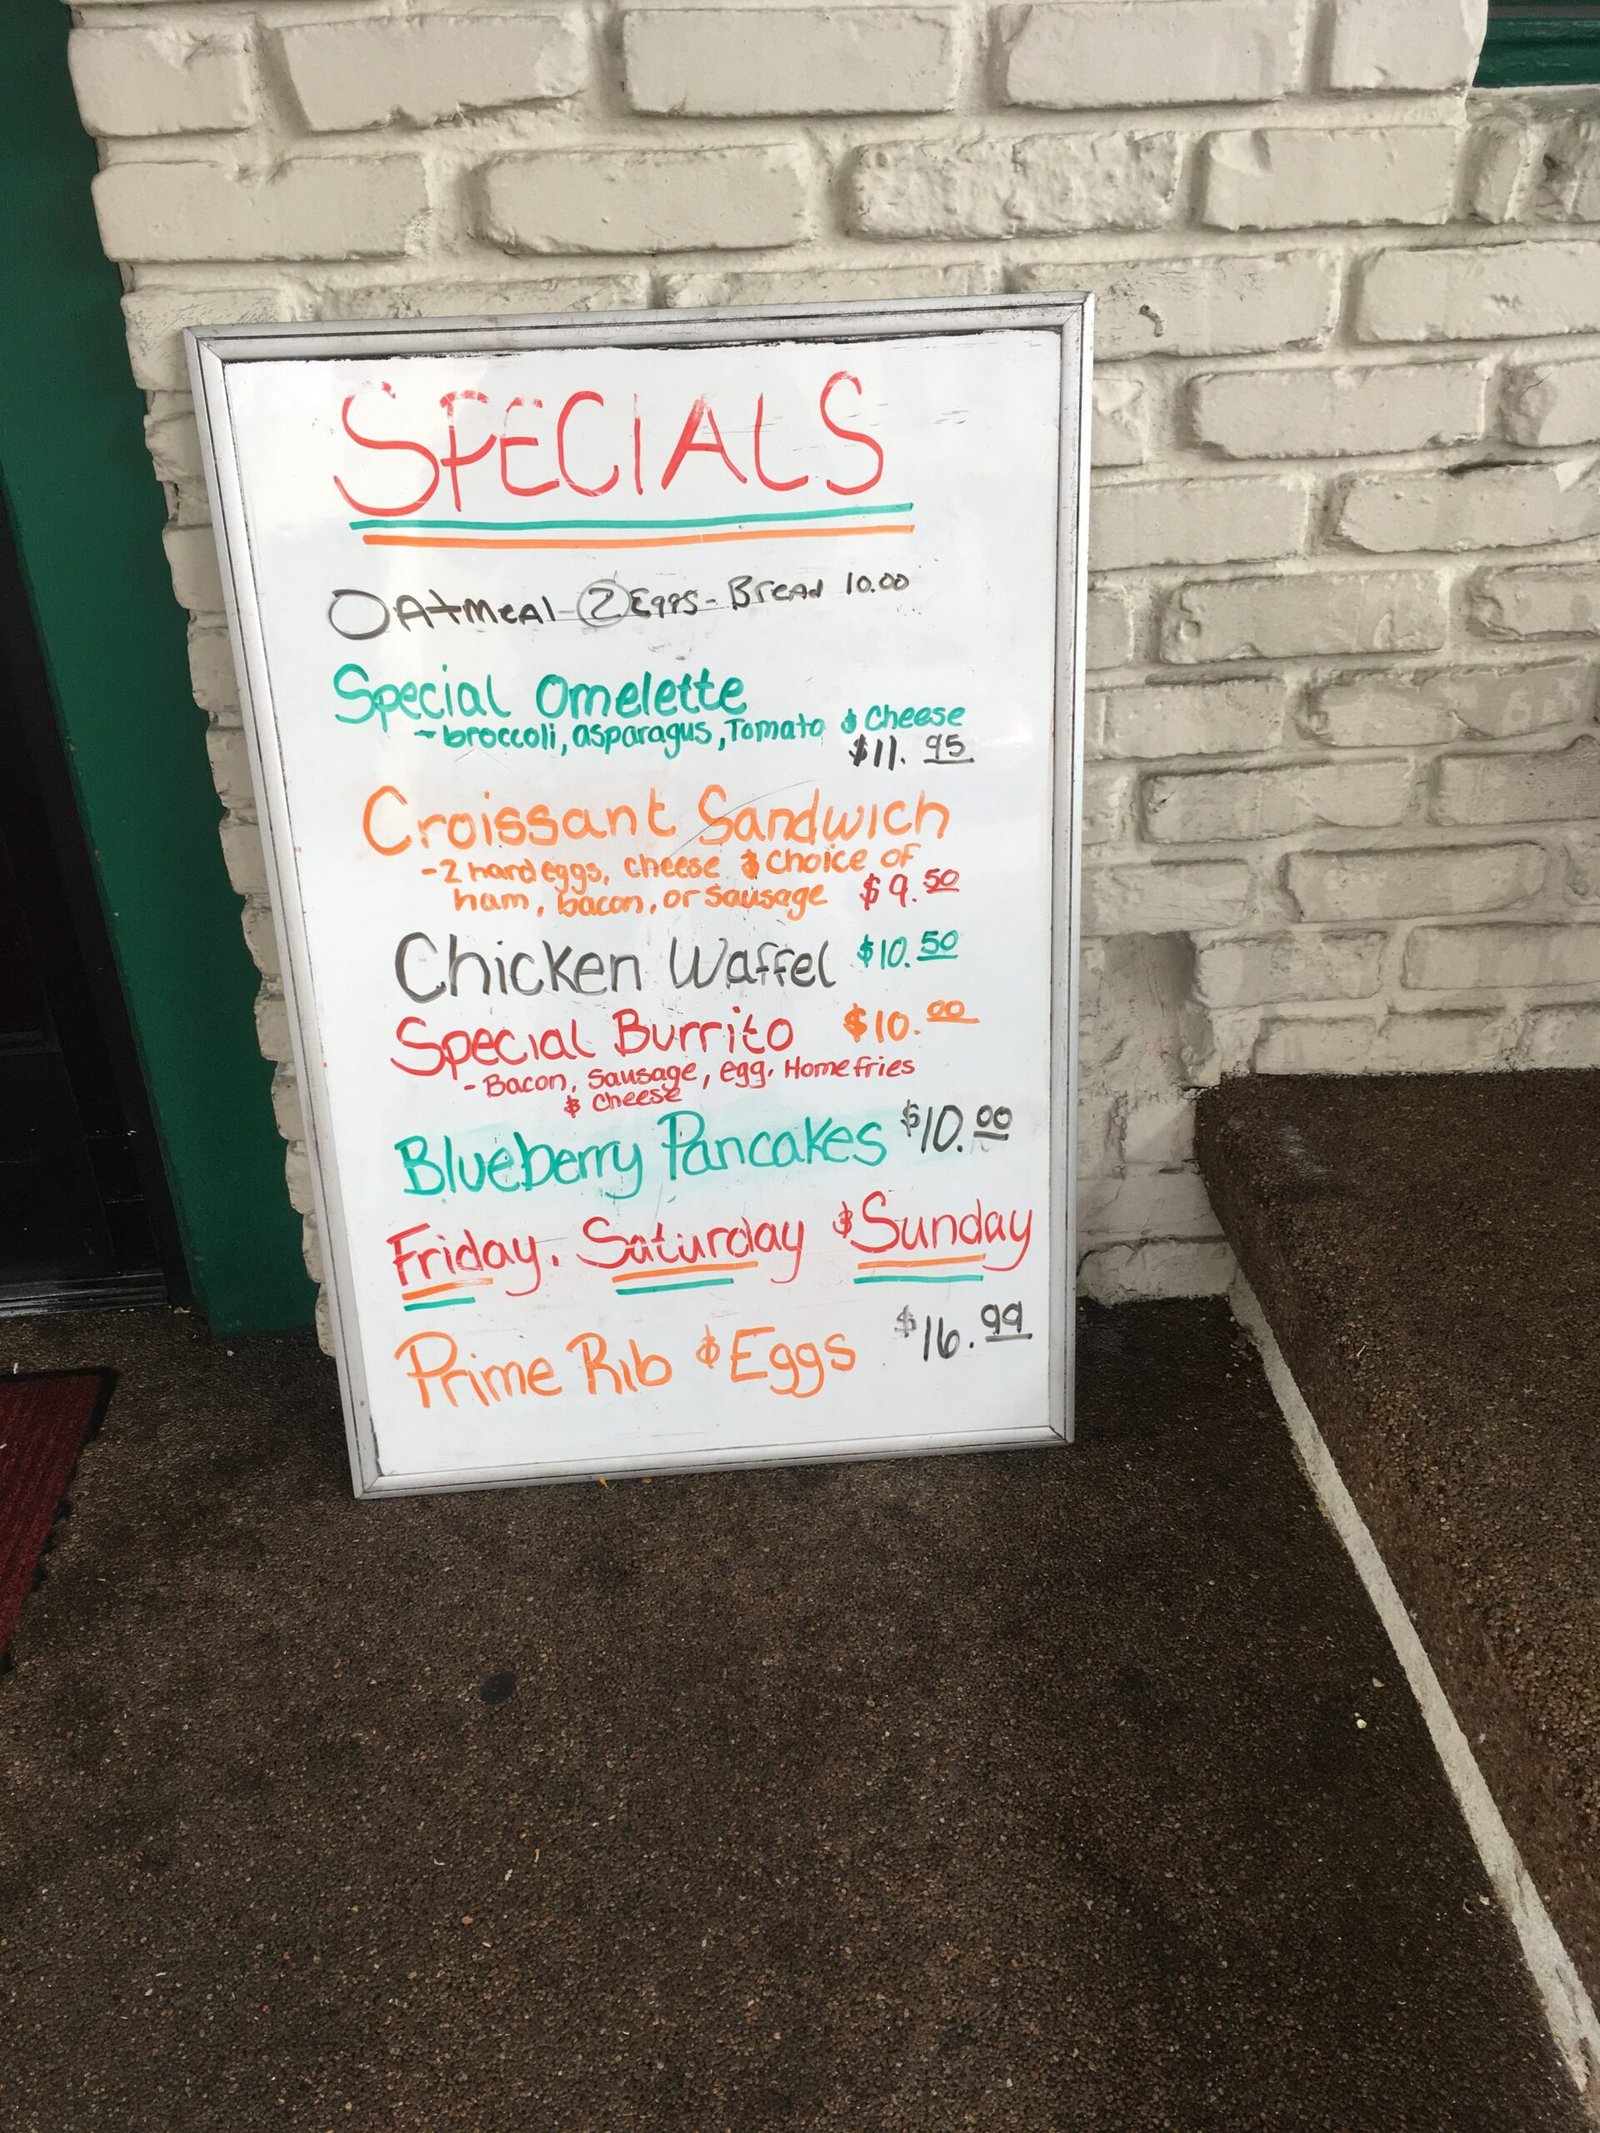 SPECIALS
OAtMeAl - 2 Eggs - BreAd 10.00
Special Omelette
- broccoli, asparagus, Tomato & Cheese
$11.95
Croissant Sandwich
- 2 hard eggs, cheese & choice of
ham, bacon, or sausage $9.50
Chicken Waffel $10.50
Special Burrito $10.00
- Bacon, sausage, egg, Homefries
& Cheese
Blueberry Pancakes $10.00
Friday, Saturday & Sunday
Prime Rib & Eggs $16.99